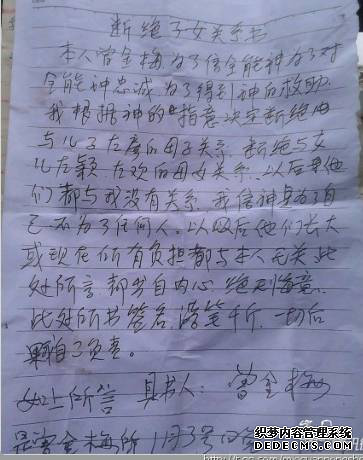 断绝子女关系书
本人曾金梅为了信全能神为了对
全能神忠诚为了得到神的救助
我根据神的“指意决定断绝
与儿子左彦的母子关系、断绝与女
儿左颖左欢的母女关系、以后
们都与我没有关系、我信神是为了自
己不为了任何人。以及后他们长大
或现在所有负担都与本人无关此
处所言都出自内心绝无悔意、
此处所书签名落笔千斤、一切后
果自负责。
如上所言 具书人: 曾金梅
是曾金梅所 11月3号
织梦内容管理系统
DEDECMS.COM